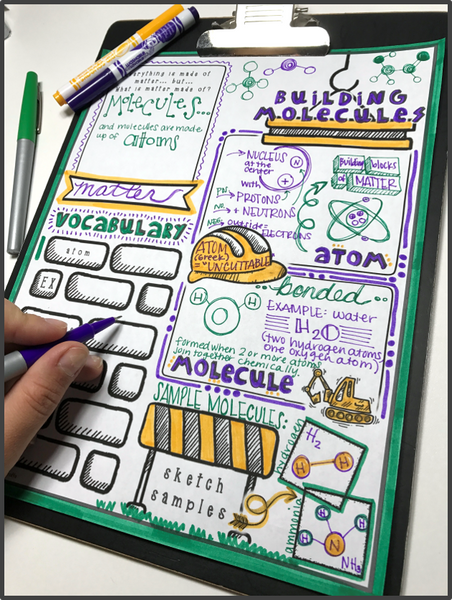 Everything is made of
matter... but...
What is matter made of?
Molecules...
and molecules are made
up of atoms
matter
VOCABULARY
atom
EX
BUILDING
MOLECULES
NUCLEUS
at the
center
with
PROTONS
+ NEUTRONS
outside
ELECTRONS
N
+
Building blocks
of MATTER
ATOM
ATOM
(Greek)
= "UNCUTTABLE"
...bonded...
H H
O
EXAMPLE: water
H2O
(two hydrogen atoms,
one oxygen atom)
formed when 2 or more atoms
join together chemically.
MOLECULE
SAMPLE MOLECULES:
sketch
samples
hydrogen
H2
H H
ammonia
H H
N
H
NH3